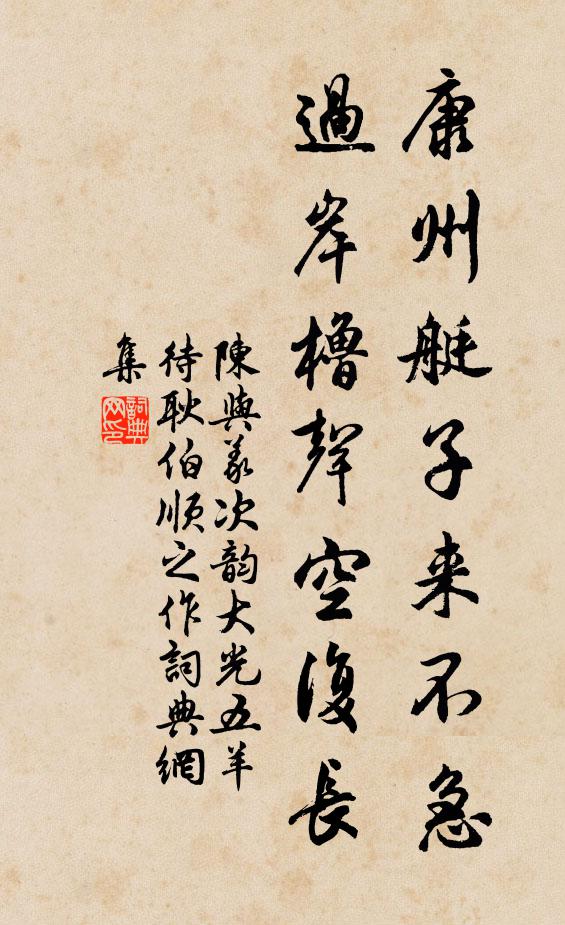 康州艇子来不急
過岸櫓聲空復長
陳與義次韵大光五羊
待耿伯順之作詞典網
集
詞典
网印